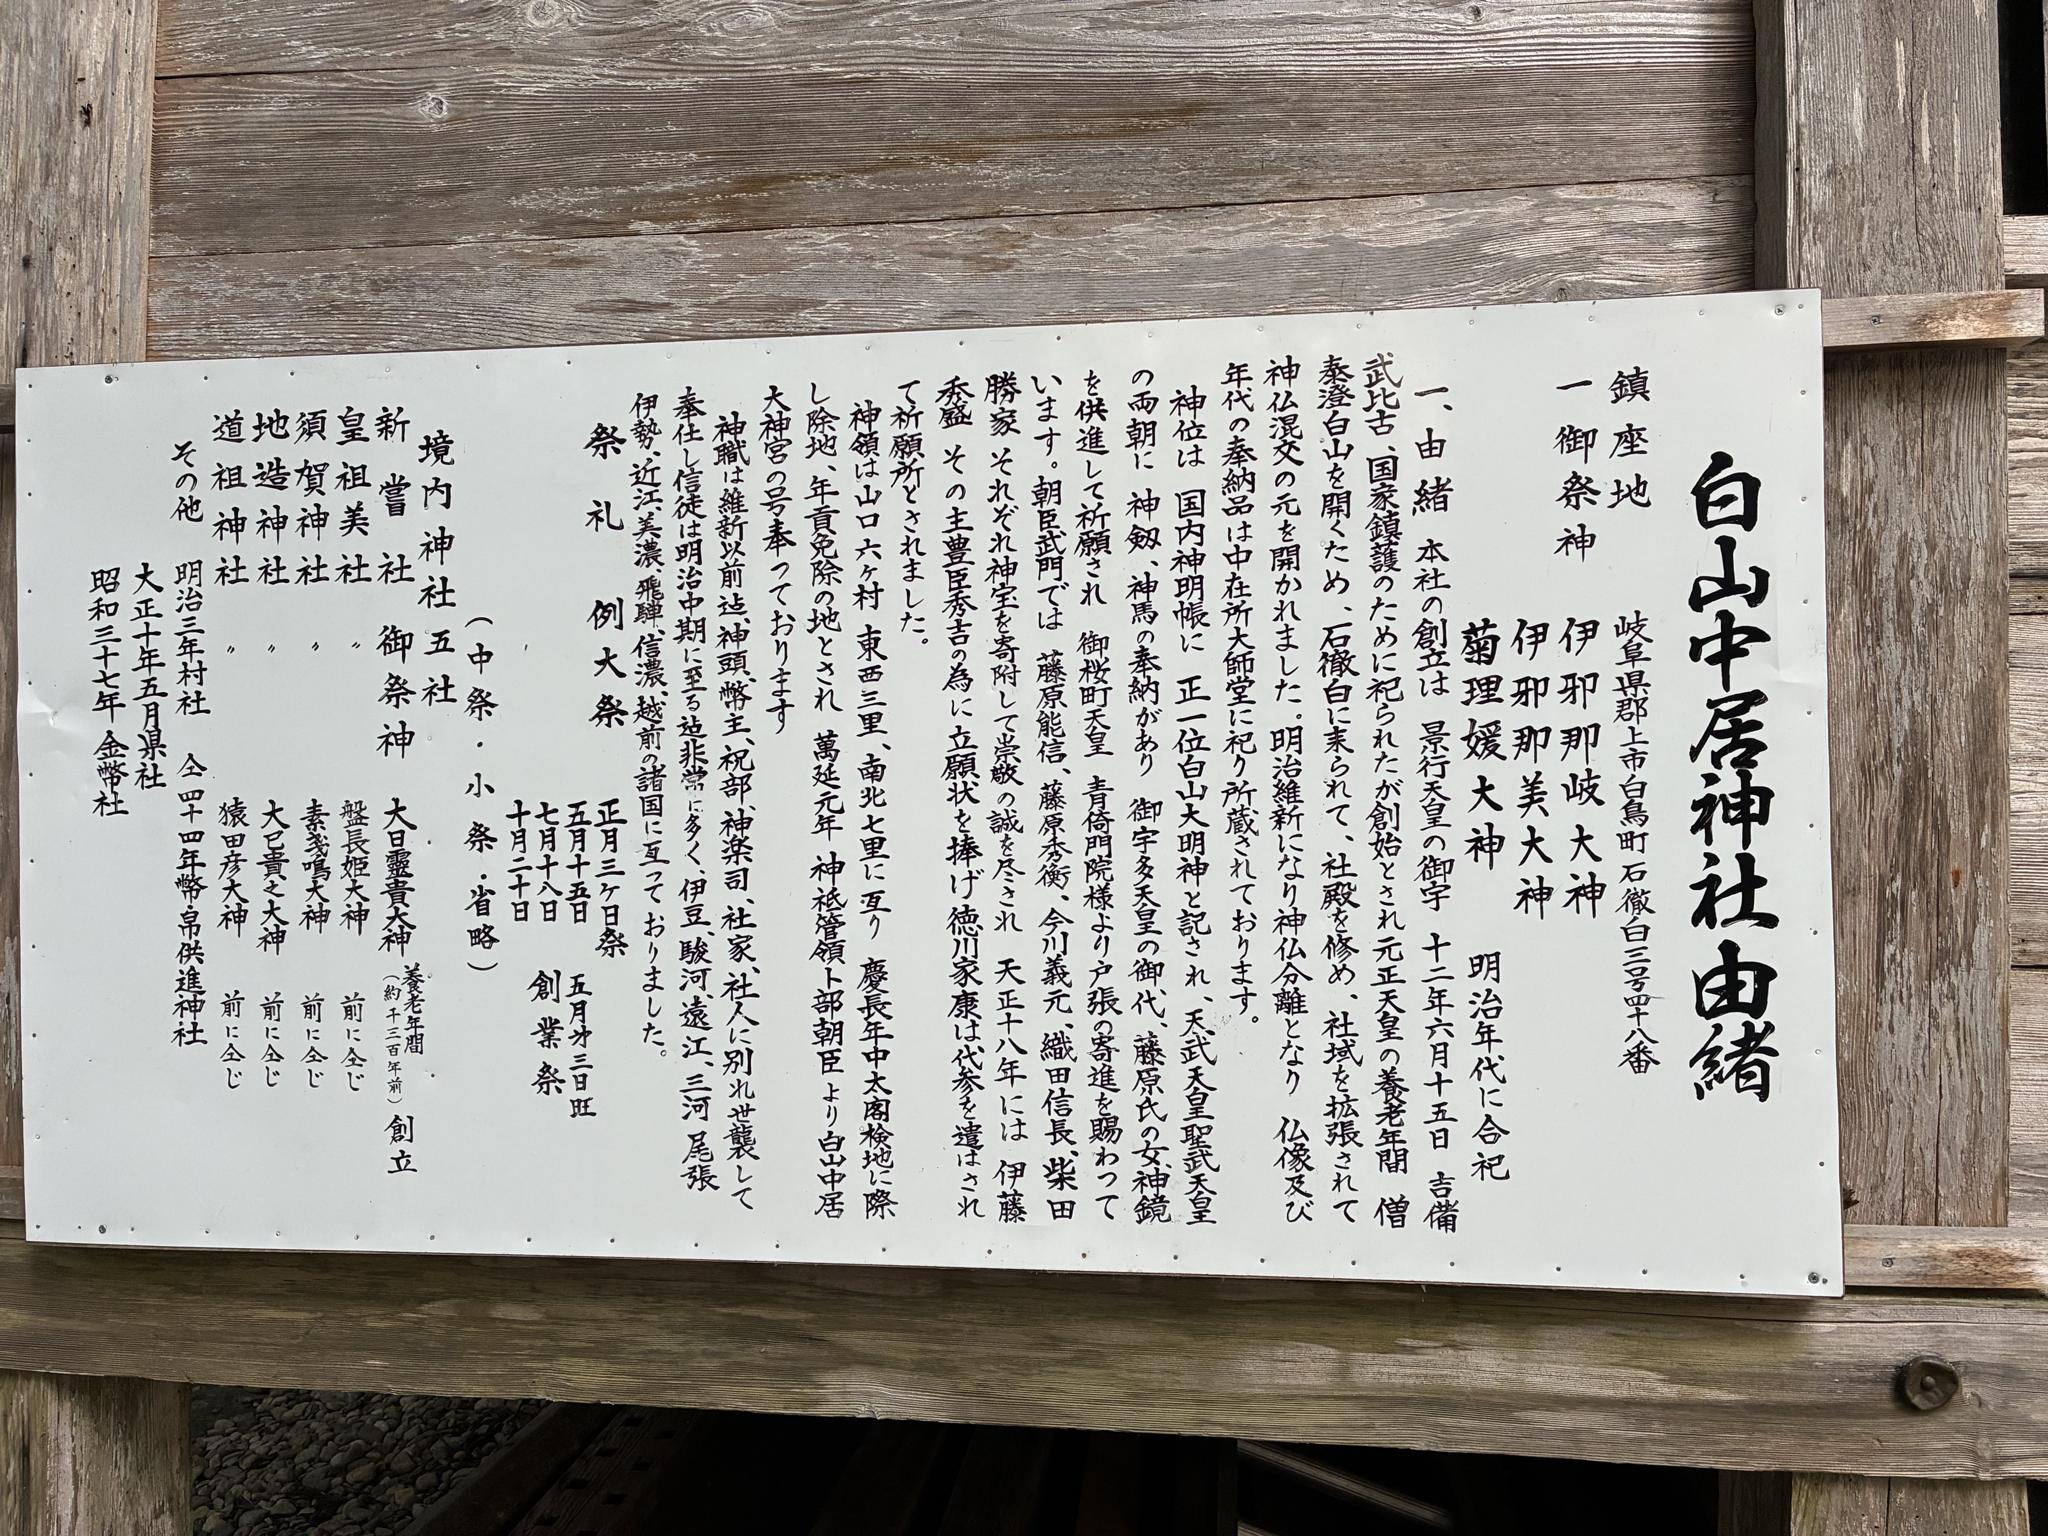 白山中居神社由緒
鎮座地 岐阜県郡上市白鳥町石徹白三号四十八番
一御祭神 伊邪那岐大神
伊邪那美大神
菊理媛大神 明治年代に合祀
一、由緒 本社の創立は 景行天皇の御宇 十二年六月十五日 吉備
武比古、国家鎮護のために祀られたが創始とされ元正天皇の養老年間 僧
泰澄白山を開くため、石徹白に来られて、社殿を修め、社域を拡張されて
神仏混交の元を開かれました。明治維新になり神仏分離となり 仏像及び
年代の奉納品は中在所大師堂に祀り所蔵されております。
神位は 国内神明帳に 正一位白山大明神と記され、天武天皇聖武天皇
の両朝に 神剱、神馬の奉納があり 御宇多天皇の御代、藤原氏の女、神鏡
を供進して祈願され 御桜町天皇 青倚門院様より戸張の寄進を賜わって
います。朝臣武門では 藤原能信、藤原秀衡、今川義元、織田信長、柴田
勝家 それぞれ神宝を寄附して崇敬の誠を尽され 天正十八年には 伊藤
秀盛 その主豊臣秀吉の為に立願状を捧げ徳川家康は代参を遣はされ
て祈願所とされました。
神領は山口六ヶ村 東西三里、南北七里に亙り 慶長年中太閤検地に際
し除地、年貢免除の地とされ 萬延元年 神祇管領卜部朝臣より白山中居
大神宮の号奉っております
神職は維新以前迠、神頭、幣主、祝部、神楽司、社家、社人に別れ世襲して
奉仕し信徒は明治中期に至る迠非常に多く、伊豆、駿河、遠江、三河 尾張
伊勢、近江、美濃、飛騨、信濃、越前の諸国に亙っておりました。
祭礼 例大祭 正月三ヶ日祭
五月十五日 五月才三日旺
七月十八日 創業祭
十月二十日
（中祭・小祭・省略）
境内神社五社
新嘗社 御祭神 大日靈貴大神 養老年間（約千三百年前）創立
皇祖美社 〃 盤長姫大神 前に仝じ
須賀神社 〃 素戔鳴大神 前に仝じ
地造神社 〃 大己貴之大神 前に仝じ
道祖神社 〃 猿田彦大神 前に仝じ
その他 明治三年村社 仝四十四年幣帛供進神社
大正十年五月県社
昭和三十七年 金幣社